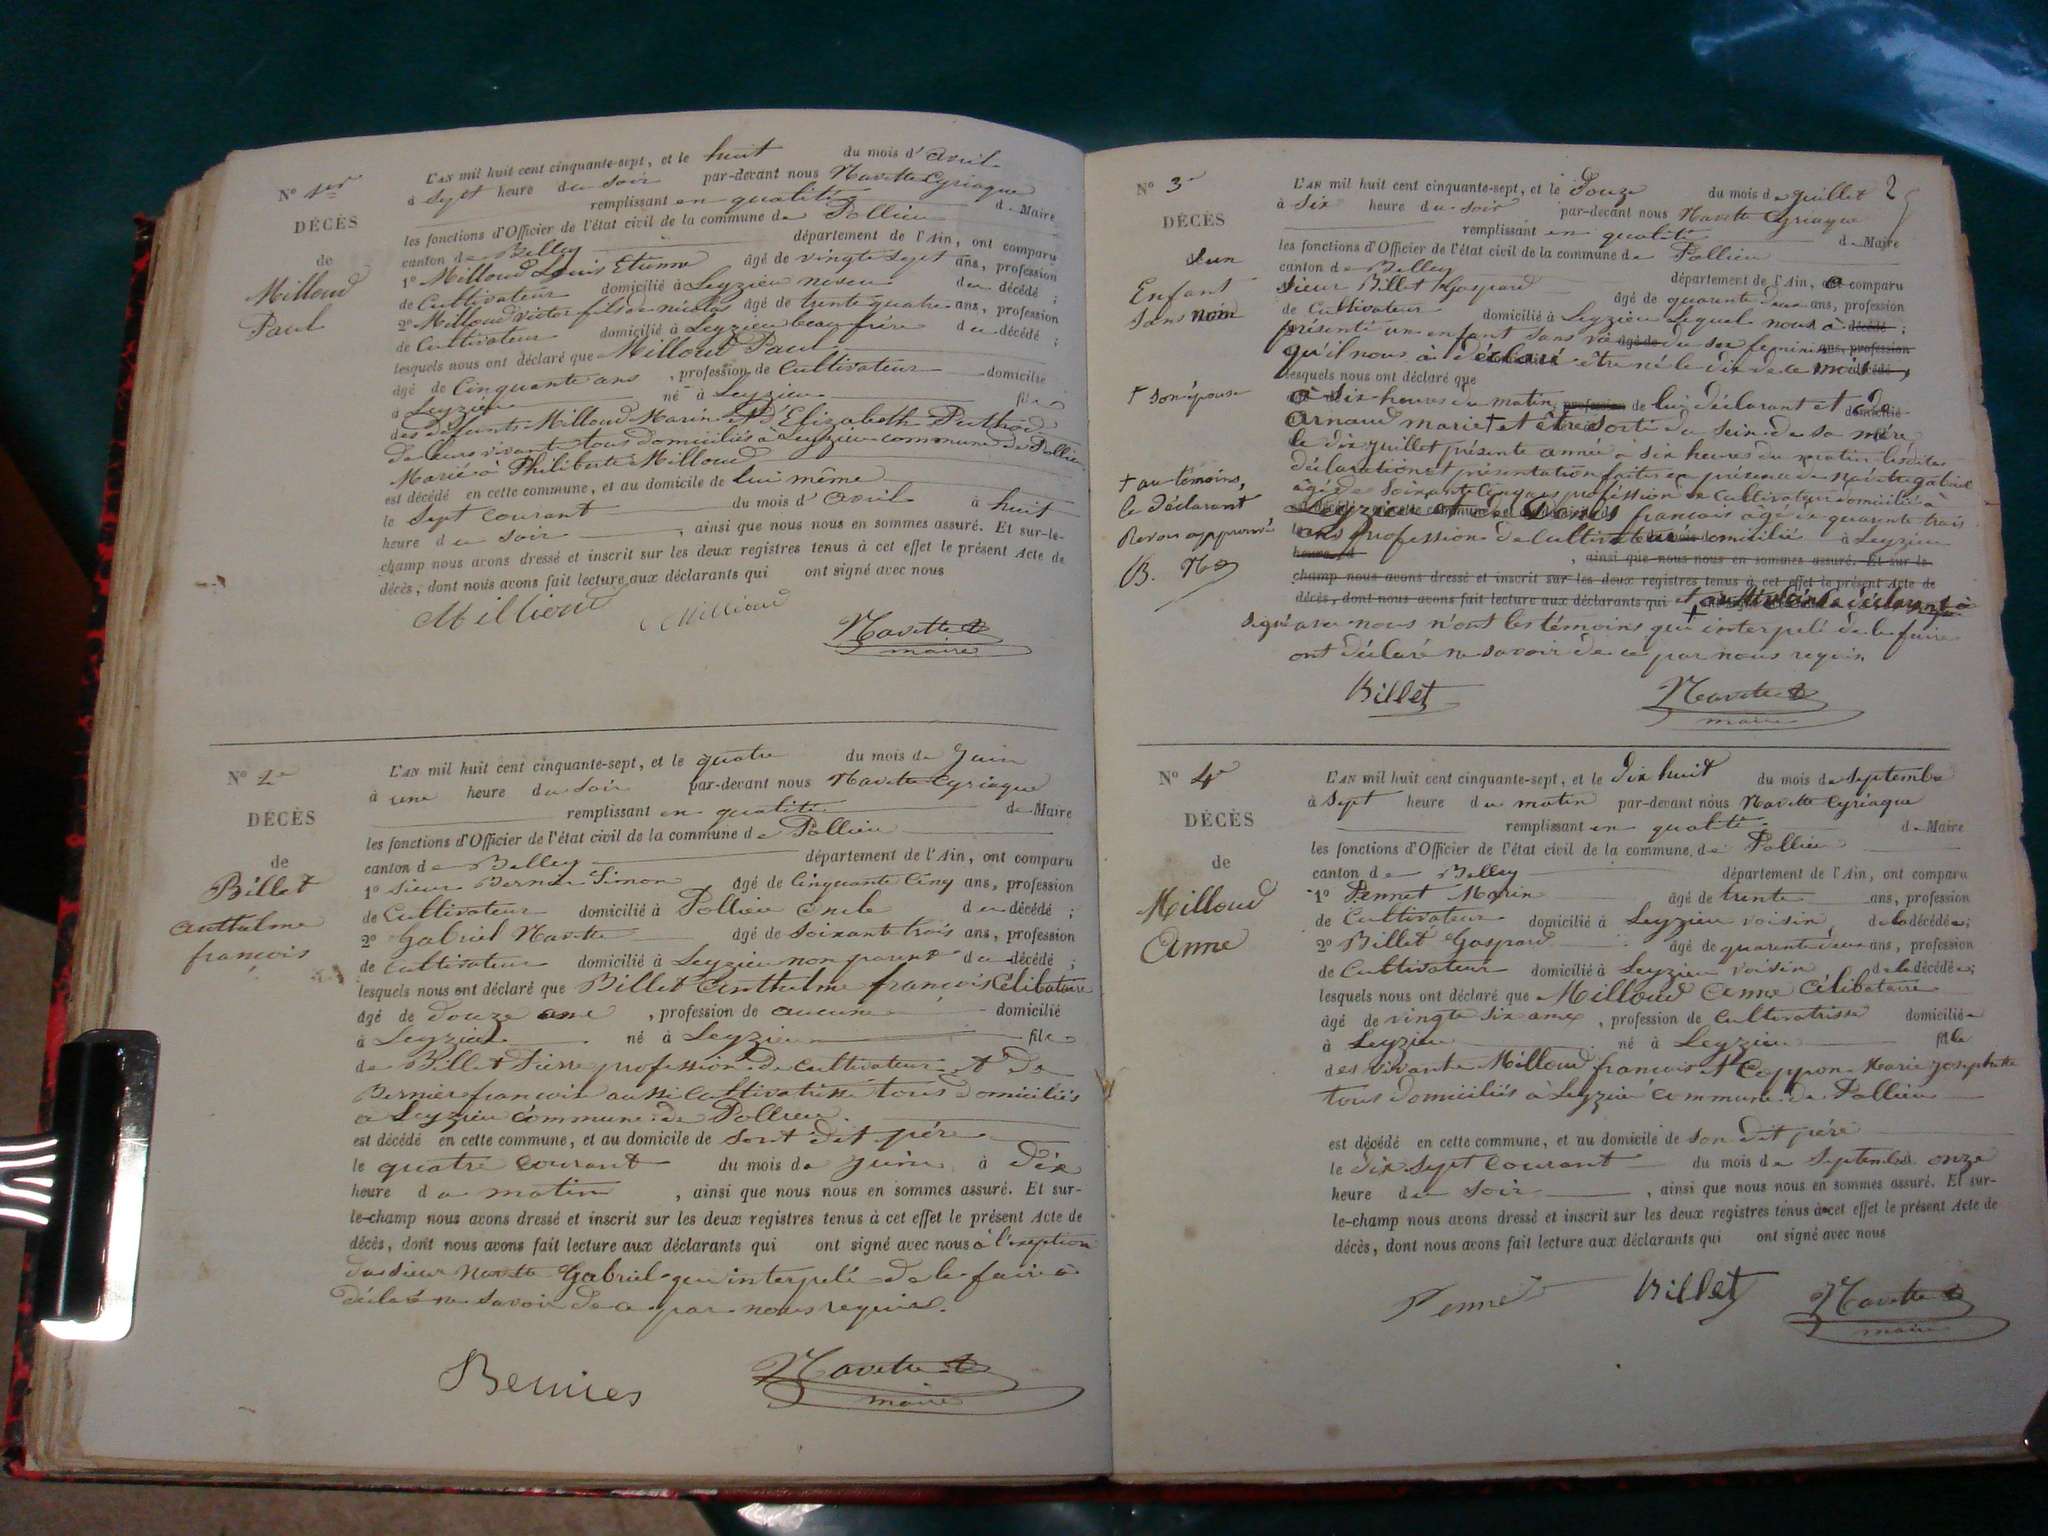 N° 1er
DÉCÈS
de
Milloud
Paul
L'AN mil huit cent cinquante-sept, et le huit du mois d'avril
à sept heure du soir par-devant nous Navette Cyriaque
remplissant en qualité de Maire
les fonctions d'Officier de l'état civil de la commune de Pollieu
canton de Belley département de l'Ain, ont comparu
1° Milloud Louis Etienne âgé de vingte sept ans, profession
de Cultivateur domicilié à Leyzieu neveu du décédé ;
2° Milloud victor fils de nicolas âgé de trente quatre ans, profession
de Cultivateur domicilié à Leyzieu beau frére du décédé ;
lesquels nous ont déclaré que Milloud Paul
âgé de Cinquante ans , profession de Cultivateur domicilié
à Leyzieu né à Leyzieu fils
des défunts Milloud Marin et d'Elizabeth
de leurs vivants tous domiciliés à Leyzieu commune de Pollieu
Marié à Philiberte Milloud
est décédé en cette commune, et au domicile de lui même
le Sept courant du mois d'avril à huit
heure du soir , ainsi que nous nous en sommes assuré. Et sur-le-
champ nous avons dressé et inscrit sur les deux registres tenus à cet effet le présent Acte de
décès, dont nous avons fait lecture aux déclarants qui ont signé avec nous
Milliout Millioud Navette
maire
N° 2e
DÉCÈS
de
Billet
anthelme
françois
L'AN mil huit cent cinquante-sept, et le quatre du mois de Juin
à une heure du soir par-devant nous Navette Cyriaque
remplissant en qualité de Maire
les fonctions d'Officier de l'état civil de la commune de Pollieu
canton de Belley département de l'Ain, ont comparu
1° Sieur Bernier Simon âgé de Cinquante Cinq ans, profession
de Cultivateur domicilié à Pollieu oncle du décédé ;
2° Gabriel Navette âgé de soixante trois ans, profession
de cultivateur domicilié à Leyzieu non parent du décédé ;
lesquels nous ont déclaré que Billet Anthelme françois Célibataire
âgé de douze ans , profession de aucune domicilié
à Leyzieu né à Leyzieu fils
de Billet Pierre profession de cultivateur et de
Bernier françoise aussi Cultivatrisse tous domiciliés
à Leyzieu commune de Pollieu
est décédé en cette commune, et au domicile de sont dit pére
le quatre courant du mois de Juin à Dix
heure du matin , ainsi que nous nous en sommes assuré. Et sur-
le-champ nous avons dressé et inscrit sur les deux registres tenus à cet effet le présent Acte de
décès, dont nous avons fait lecture aux déclarants qui ont signé avec nous à l'exeption
du sieur Navette Gabriel qui interpelé de le faire à
déclaré ne savoir de ce par nous requis.
Bernier Navette
maire
2
N° 3e
DÉCÈS
dun
Enfant
Sans nom
L'AN mil huit cent cinquante-sept, et le Douze du mois de Juillet
à Six heure du soir par-devant nous Navette Cyriaque
remplissant en qualité de Maire
les fonctions d'Officier de l'état civil de la commune de Pollieu
canton de Belley département de l'Ain, a comparu
Sieur Billet Gaspard âgé de quarente deux ans, profession
de Cultivateur domicilié à Leyzieu Lequel nous à décédé ;
présenté un enfant sans vie âgé de du sex feminin ans, profession
qu'il nous à déclaré être né le dix de ce mois
lesquels nous ont déclaré que
à Six heures du matin profession de lui déclarant et de
† son épouse
arnaud marie † et être sorti du sein de sa mére
le dix juillet présente année à six heures du matin lesdites
déclaration et présentation faites en présence de Navette gabriel
âgé de soixante Cinq ans profession de cultivateur domicilié à
† au témoins,
le déclarant
B. N
Leyzieu et de françois âgé de quarente trois
ans profession de Cultivateur domicilié à Leyzieu
heure d , ainsi que nous nous en sommes assuré. Et sur le
champ nous avons dressé et inscrit sur les deux registres tenus à cet effet le présent Acte de
décès, dont nous avons fait lecture aux déclarants qui et
signé avec nous n'ont les témoins qui † interpelé de le faire
ont déclaré ne savoir de ce par nous requis
Billet Navette
maire
N° 4e
DÉCÈS
de
Milloud
Anne
L'AN mil huit cent cinquante-sept, et le Dix huit du mois de Septembre
à Sept heure du matin par-devant nous Navette Cyriaque
remplissant en qualité de Maire
les fonctions d'Officier de l'état civil de la commune de Pollieu
canton de Belley département de l'Ain, ont comparu
1° Pennet Marin âgé de trente ans, profession
de Cultivateur domicilié à Leyzieu voisin de la décédée ;
2° Billet Gaspard âgé de quarente deux ans, profession
de Cultivateur domicilié à Leyzieu voisin de la décédée ;
lesquels nous ont déclaré que Milloud Anne Célibataire
âgé de vingte six ans , profession de Cultivatrisse domiciliée
à Leyzieu né à Leyzieu fille
des vivante Milloud françois et Marie Josephette
tous domiciliés à Leyzieu commune de Pollieu
est décédé en cette commune, et au domicile de son dit pére
le dix Sept courant du mois de Septembre à onze
heure du soir , ainsi que nous nous en sommes assuré. Et sur-
le-champ nous avons dressé et inscrit sur les deux registres tenus à cet effet le présent Acte de
décès, dont nous avons fait lecture aux déclarants qui ont signé avec nous
Pennet Billet Navette
maire